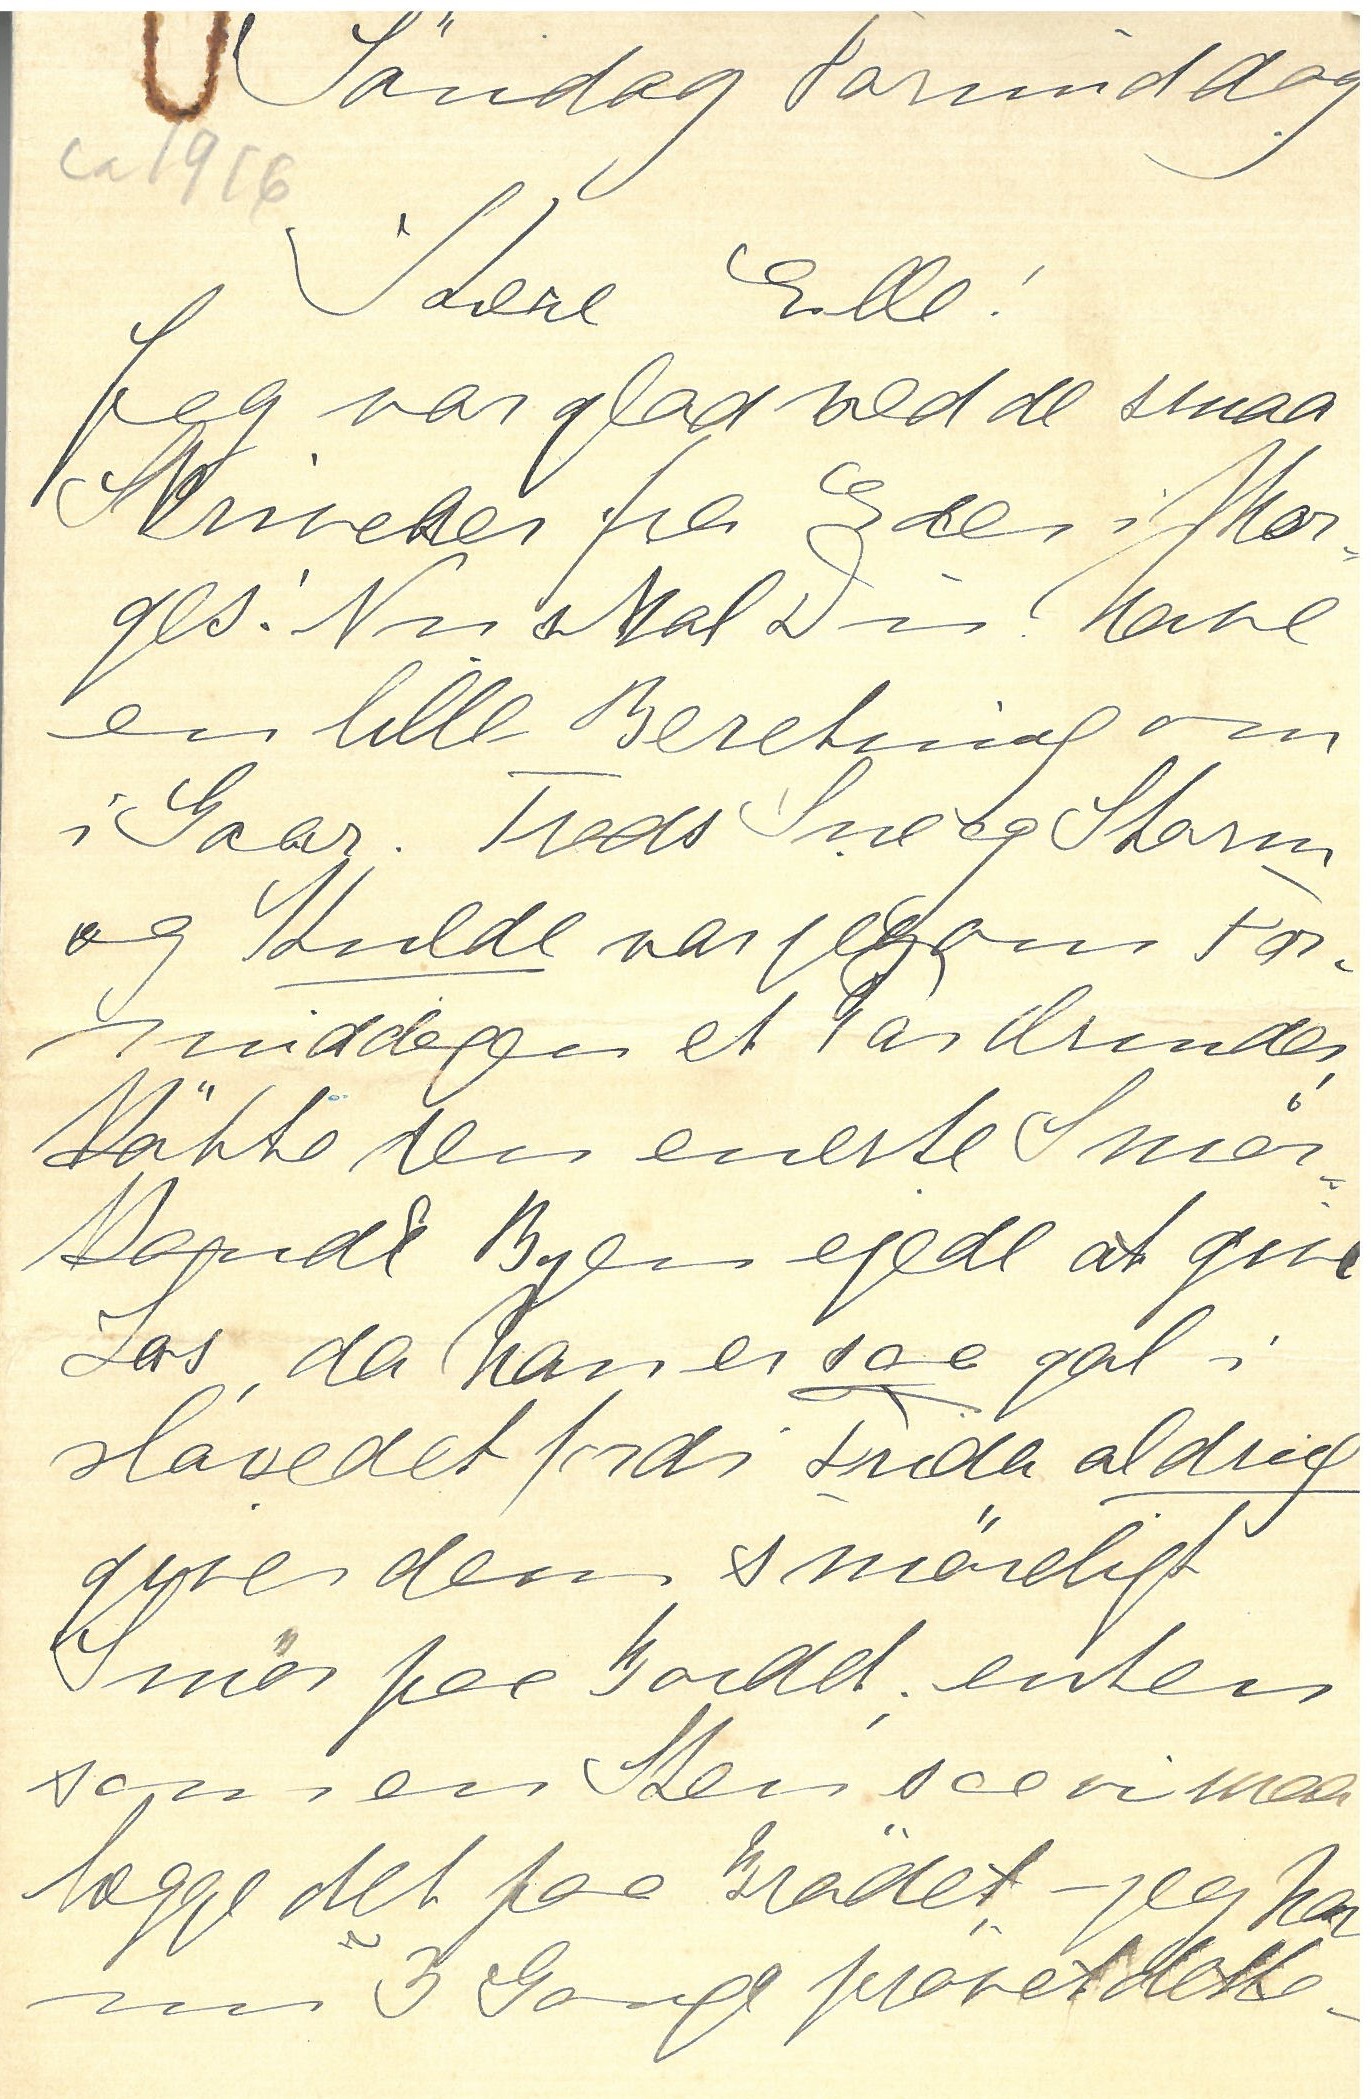 Söndag Formiddag
ca 1916
Kære Elle!
Jeg var glad ved de smaa
Skrivelser fra Eder i Mor-
ges! Nu skal Du have
en lille Beretning om
i Gaar. Trods Sne og Storm
og Kulde var jeg om For-
middagen et Par Ærinder,
købte den eneste Smör-
Byen ejede at give
Las, da han er saa gal i
Hovedet fordi Frida aldrig
giver dem smørligt
Smör paa Bordet, enten
som en Sten saa vi maa
lægge det paa Brödet – jeg har
nu 3 Gange prövet dette –